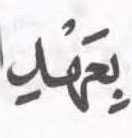 بِعَهْدِي